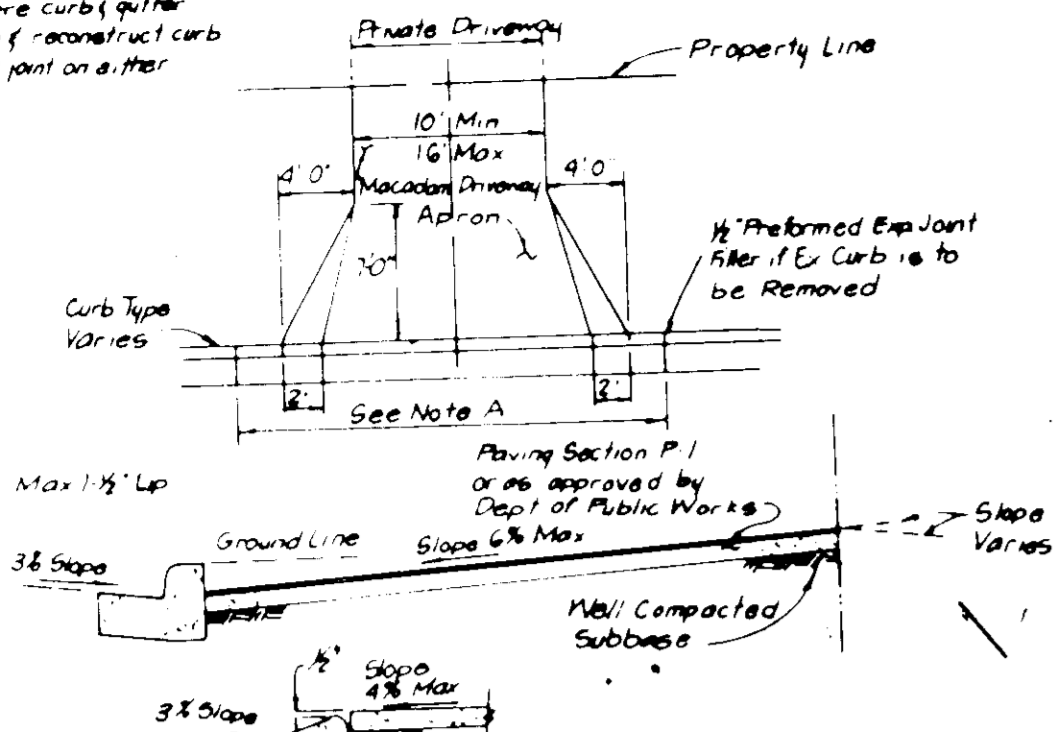 ere curb & gutter
& reconstruct curb
joint on either
Private Driveway
Property Line
10' Min
16' Max
4'0"
4'0
Macadam Driveway
Apron
7'0"
½" Preformed Exp Joint
Filler if Ex Curb is to
be Removed
Curb Type
Varies
2'
2'
See Note A
Max 1-½" Lip
Paving Section P-1
or as approved by
Dept of Public Works
Ground Line
Slope 6% Max
Slope
Varies
3% Slope
Well Compacted
Subbase
½"
Slope
4% Max
3% Slope